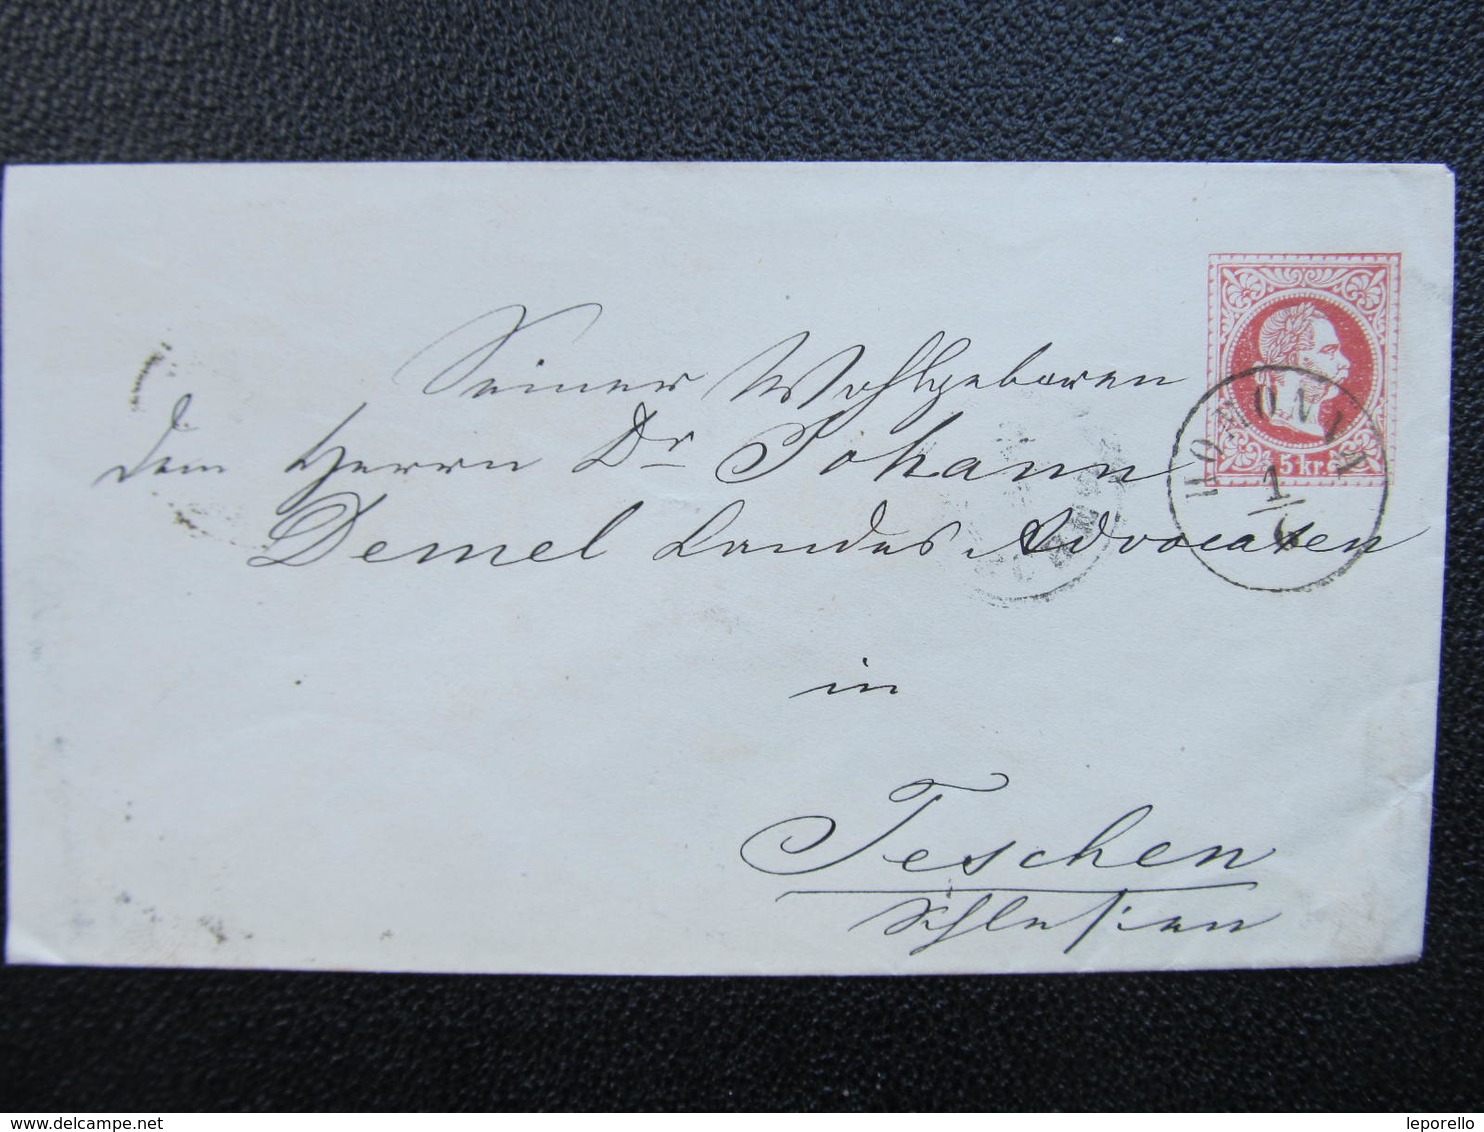 Seiner Wohlgeboren
dem Herrn Dr Johann
Demel Landes Advocaten
in
Teschen
Schlesien
5 kr.
1
leporello